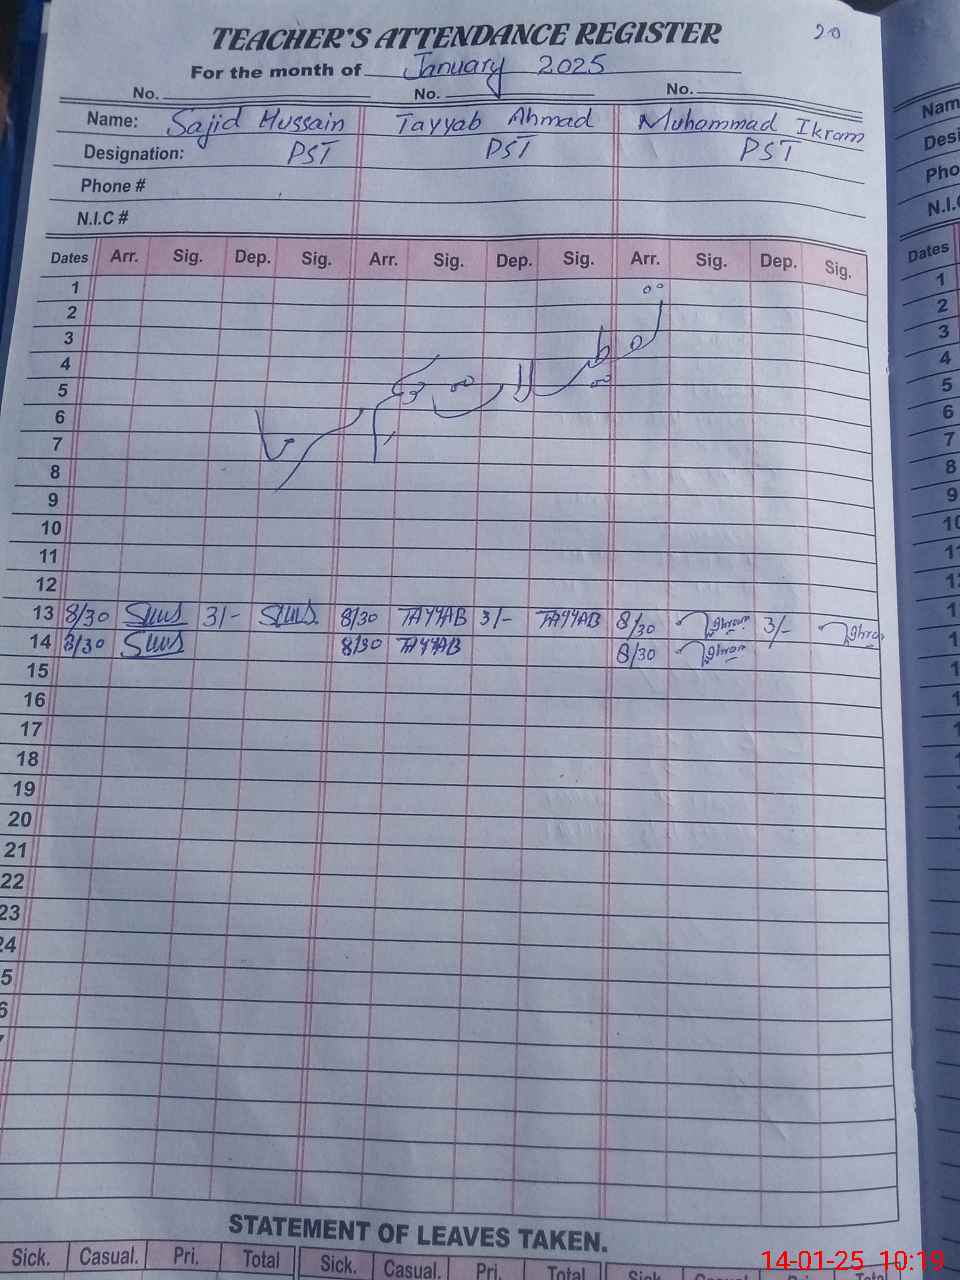 20
TEACHER'S ATTENDANCE REGISTER
For the month of January 2025
No. No. No.
Name: Sajid Hussain Tayyab Ahmad Muhammad Ikram
Designation: PST PST PST
Phone #
N.I.C #
Dates Arr. Sig. Dep. Sig. Arr. Sig. Dep. Sig. Arr. Sig. Dep. Sig.
1
2
3
4
5
6
7
8
9
10
11
12
13 8/30 3/- 8/30 TAYYAB 3/- TAYYAB 8/30 Ikram 3/-
14 8/30 8/30 TAYYAB 8/30 Ikram
15
16
17
18
19
20
21
22
23
24
5
6
STATEMENT OF LEAVES TAKEN.
Sick. Casual. Pri. Total Sick. Casual. Pri. Total Sick. Total
14-01-25 10:19
Dates
1
2
3
4
5
6
7
8
9
10